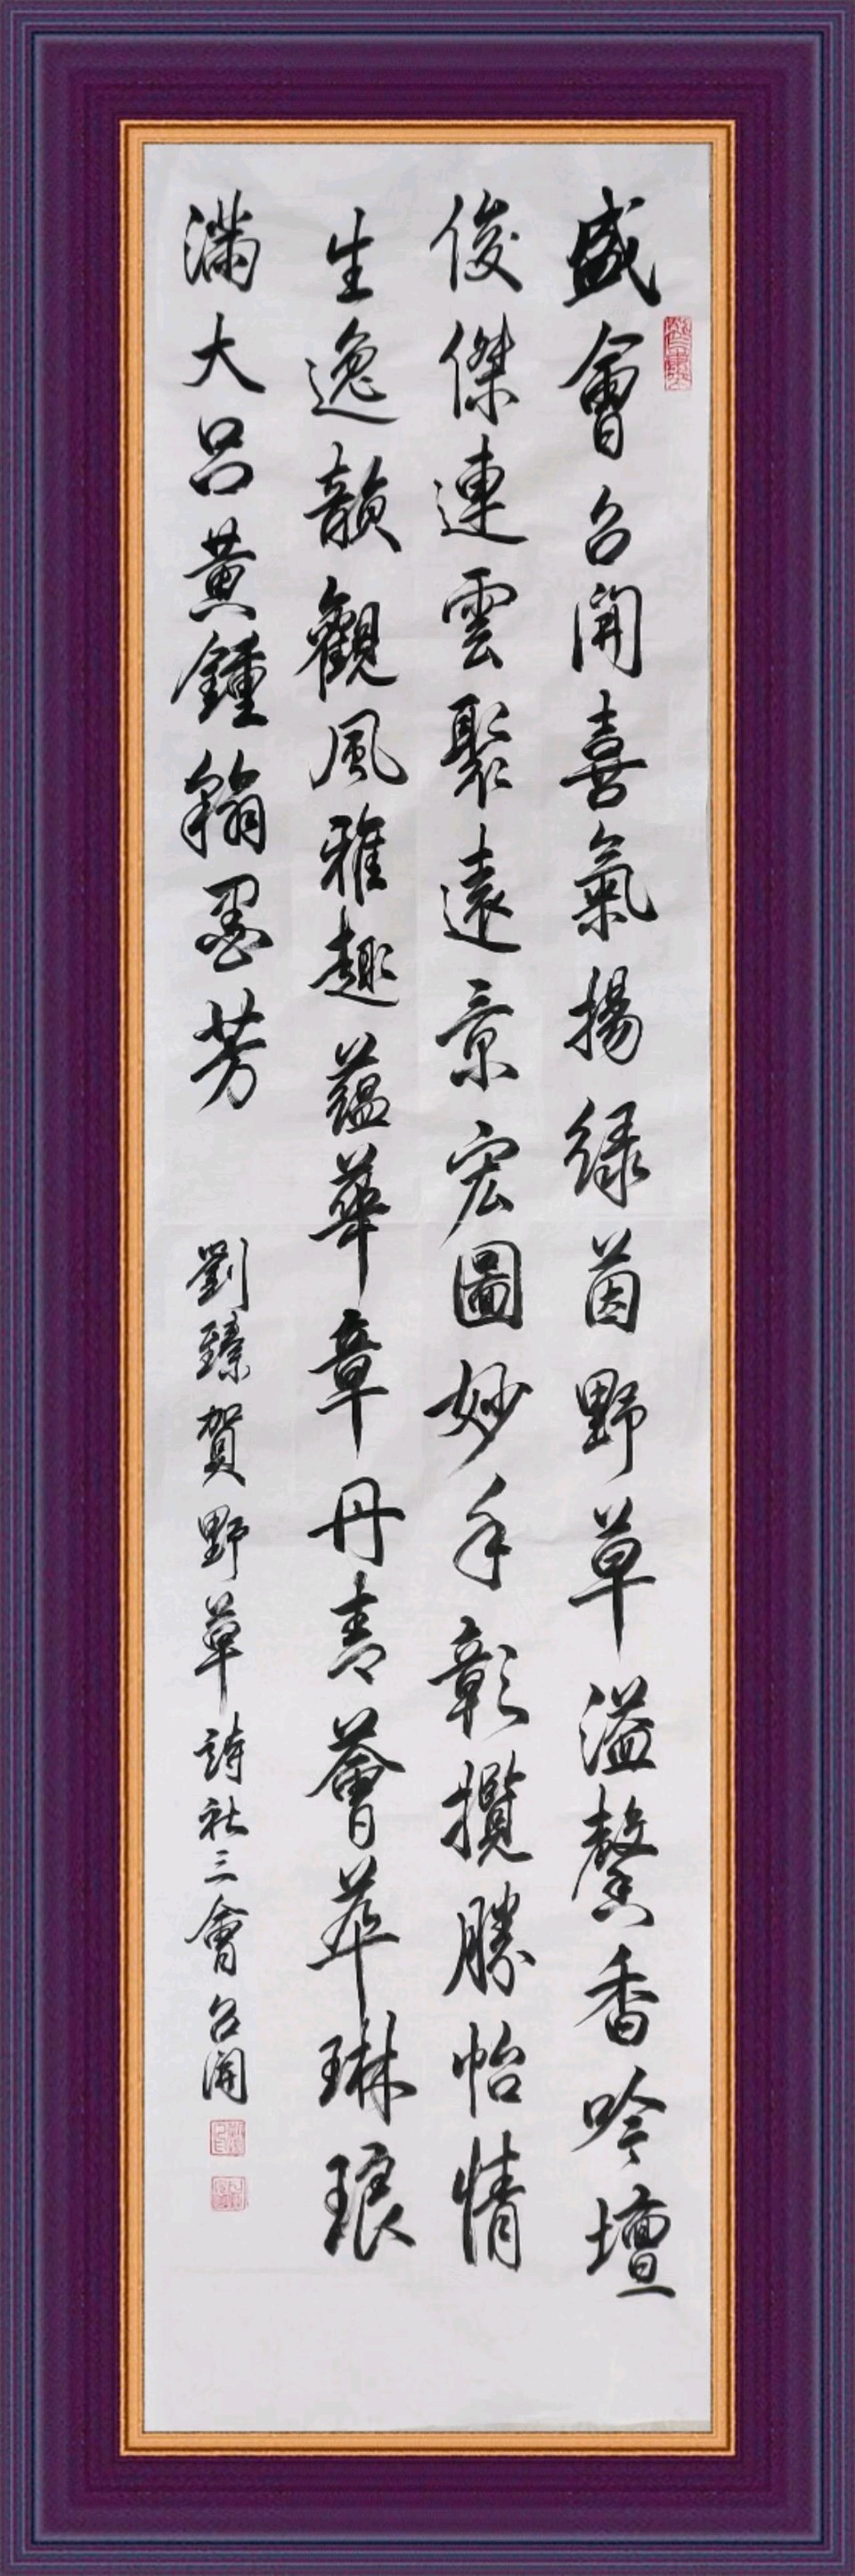 盛會召開喜氣揚綠茵野草溢馨香吟壇
俊傑連雲聚遠景宏圖妙手彰攬勝怡情
生逸韻觀風雅趣蘊華章丹青薈萃琳琅
滿大呂黃鍾翰墨芳
劉臻賀野草詩社三會召開